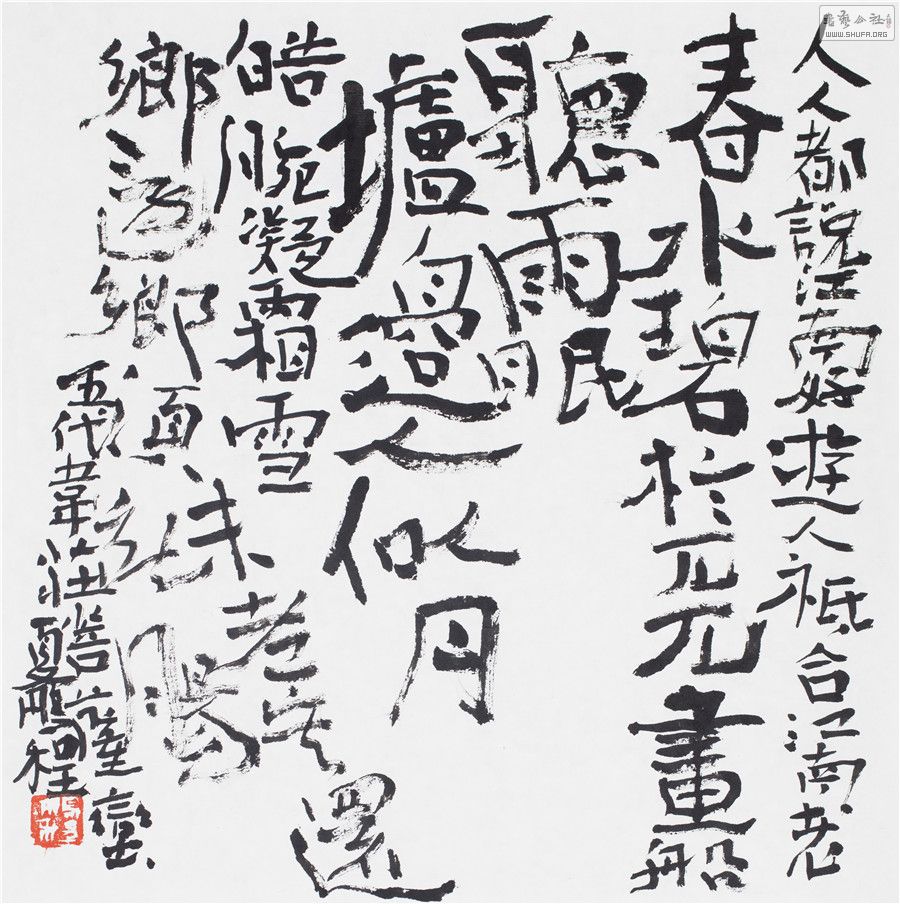 人人都說江南好遊人祇合江南老
春水碧於天畫船
聽雨眠
壚邊人似月
皓腕凝霜雪
未老莫還
鄉還鄉須斷腸
五代韋莊菩薩蠻
WWW.SHUFA.ORG